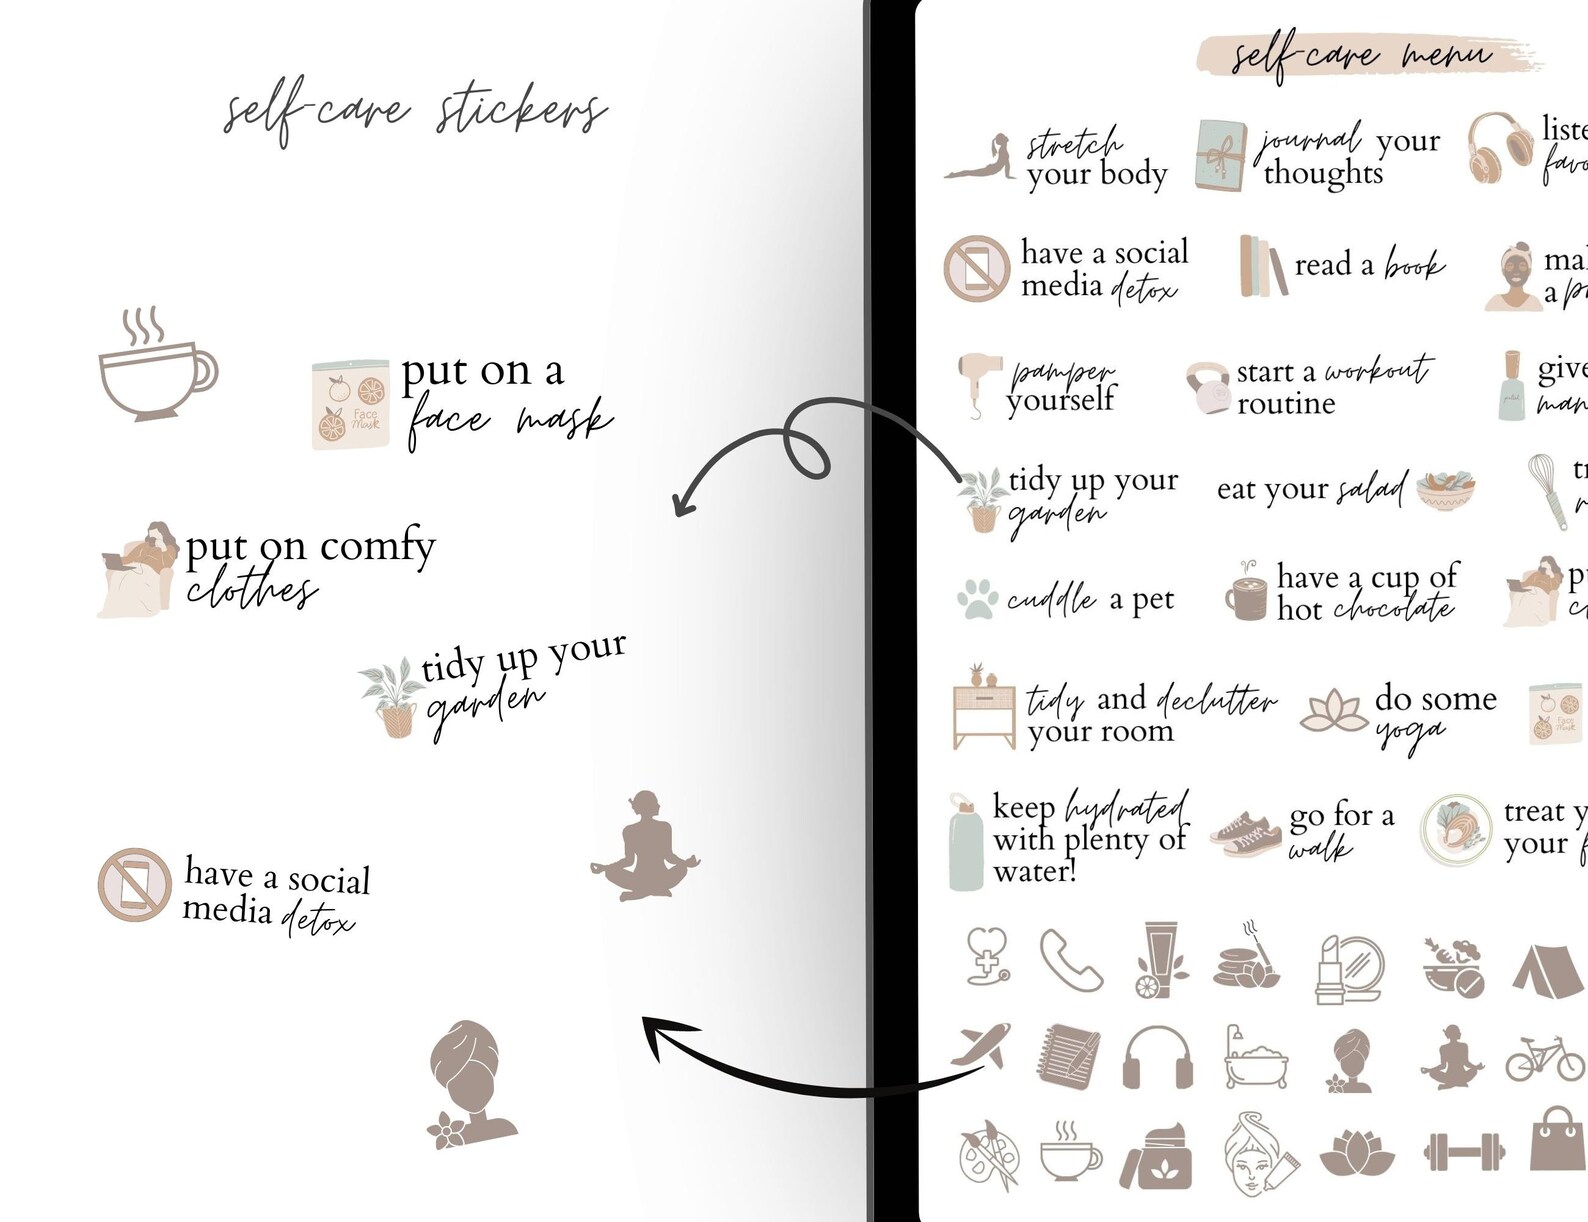 self-care stickers
put on a
face mask
Face
Mask
put on comfy
clothes
tidy up your
garden
have a social
media detox
self-care menu
stretch
your body
journal your
thoughts
liste
favo
have a social
media detox
read a book
mak
a p
pamper
yourself
start a workout
routine
give
man
tidy up your
garden
eat your salad
t
r
cuddle a pet
have a cup of
hot chocolate
p
cl
tidy and declutter
your room
do some
yoga
Face
Mask
keep hydrated
with plenty of
water!
go for a
walk
treat y
your f